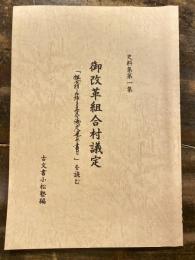 史料集第一集
御改革組合村議定
を読む
古文書小松塾編